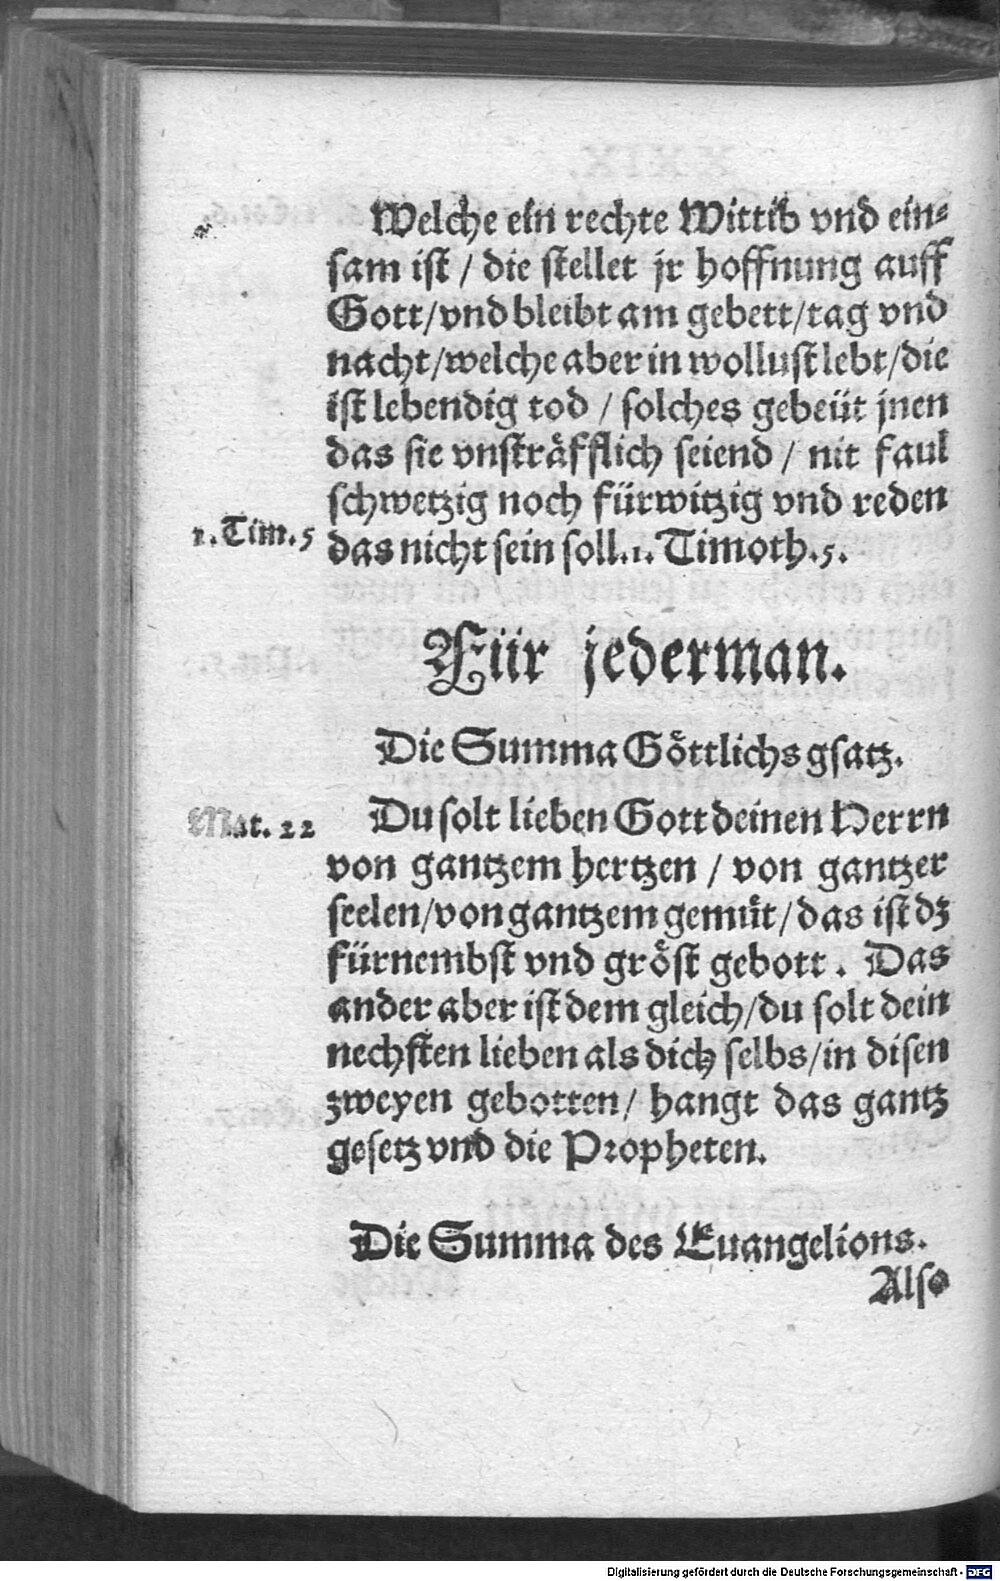 Welche ein rechte Wittib vnd ein⸗
sam ist / die stellet jr hoffnung auff
Gott/vnd bleibt am gebett/tag vnd
nacht/welche aber in wollust lebt/die
ist lebendig tod / solches gebeüt jnen
das sie vnsträfflich seiend / nit faul
schwetzig noch fürwitzig vnd reden
1. Tim. 5
das nicht sein soll. 1. Timoth. 5.
Für jederman.
Die Summa Göttlichs gsatz.
Mat. 22
Du solt lieben Gott deinen Herrn
von gantzem hertzen / von gantzer
seelen/von gantzem gemüt/das ist dz
fürnembst vnd gröst gebott. Das
ander aber ist dem gleich/du solt dein
nechsten lieben als dich selbs/in disen
zweyen gebotten/ hangt das gantz
gesetz vnd die Propheten.
Die Summa des Euangelions.
Also
Digitalisierung gefördert durch die Deutsche Forschungsgemeinschaft - DFG